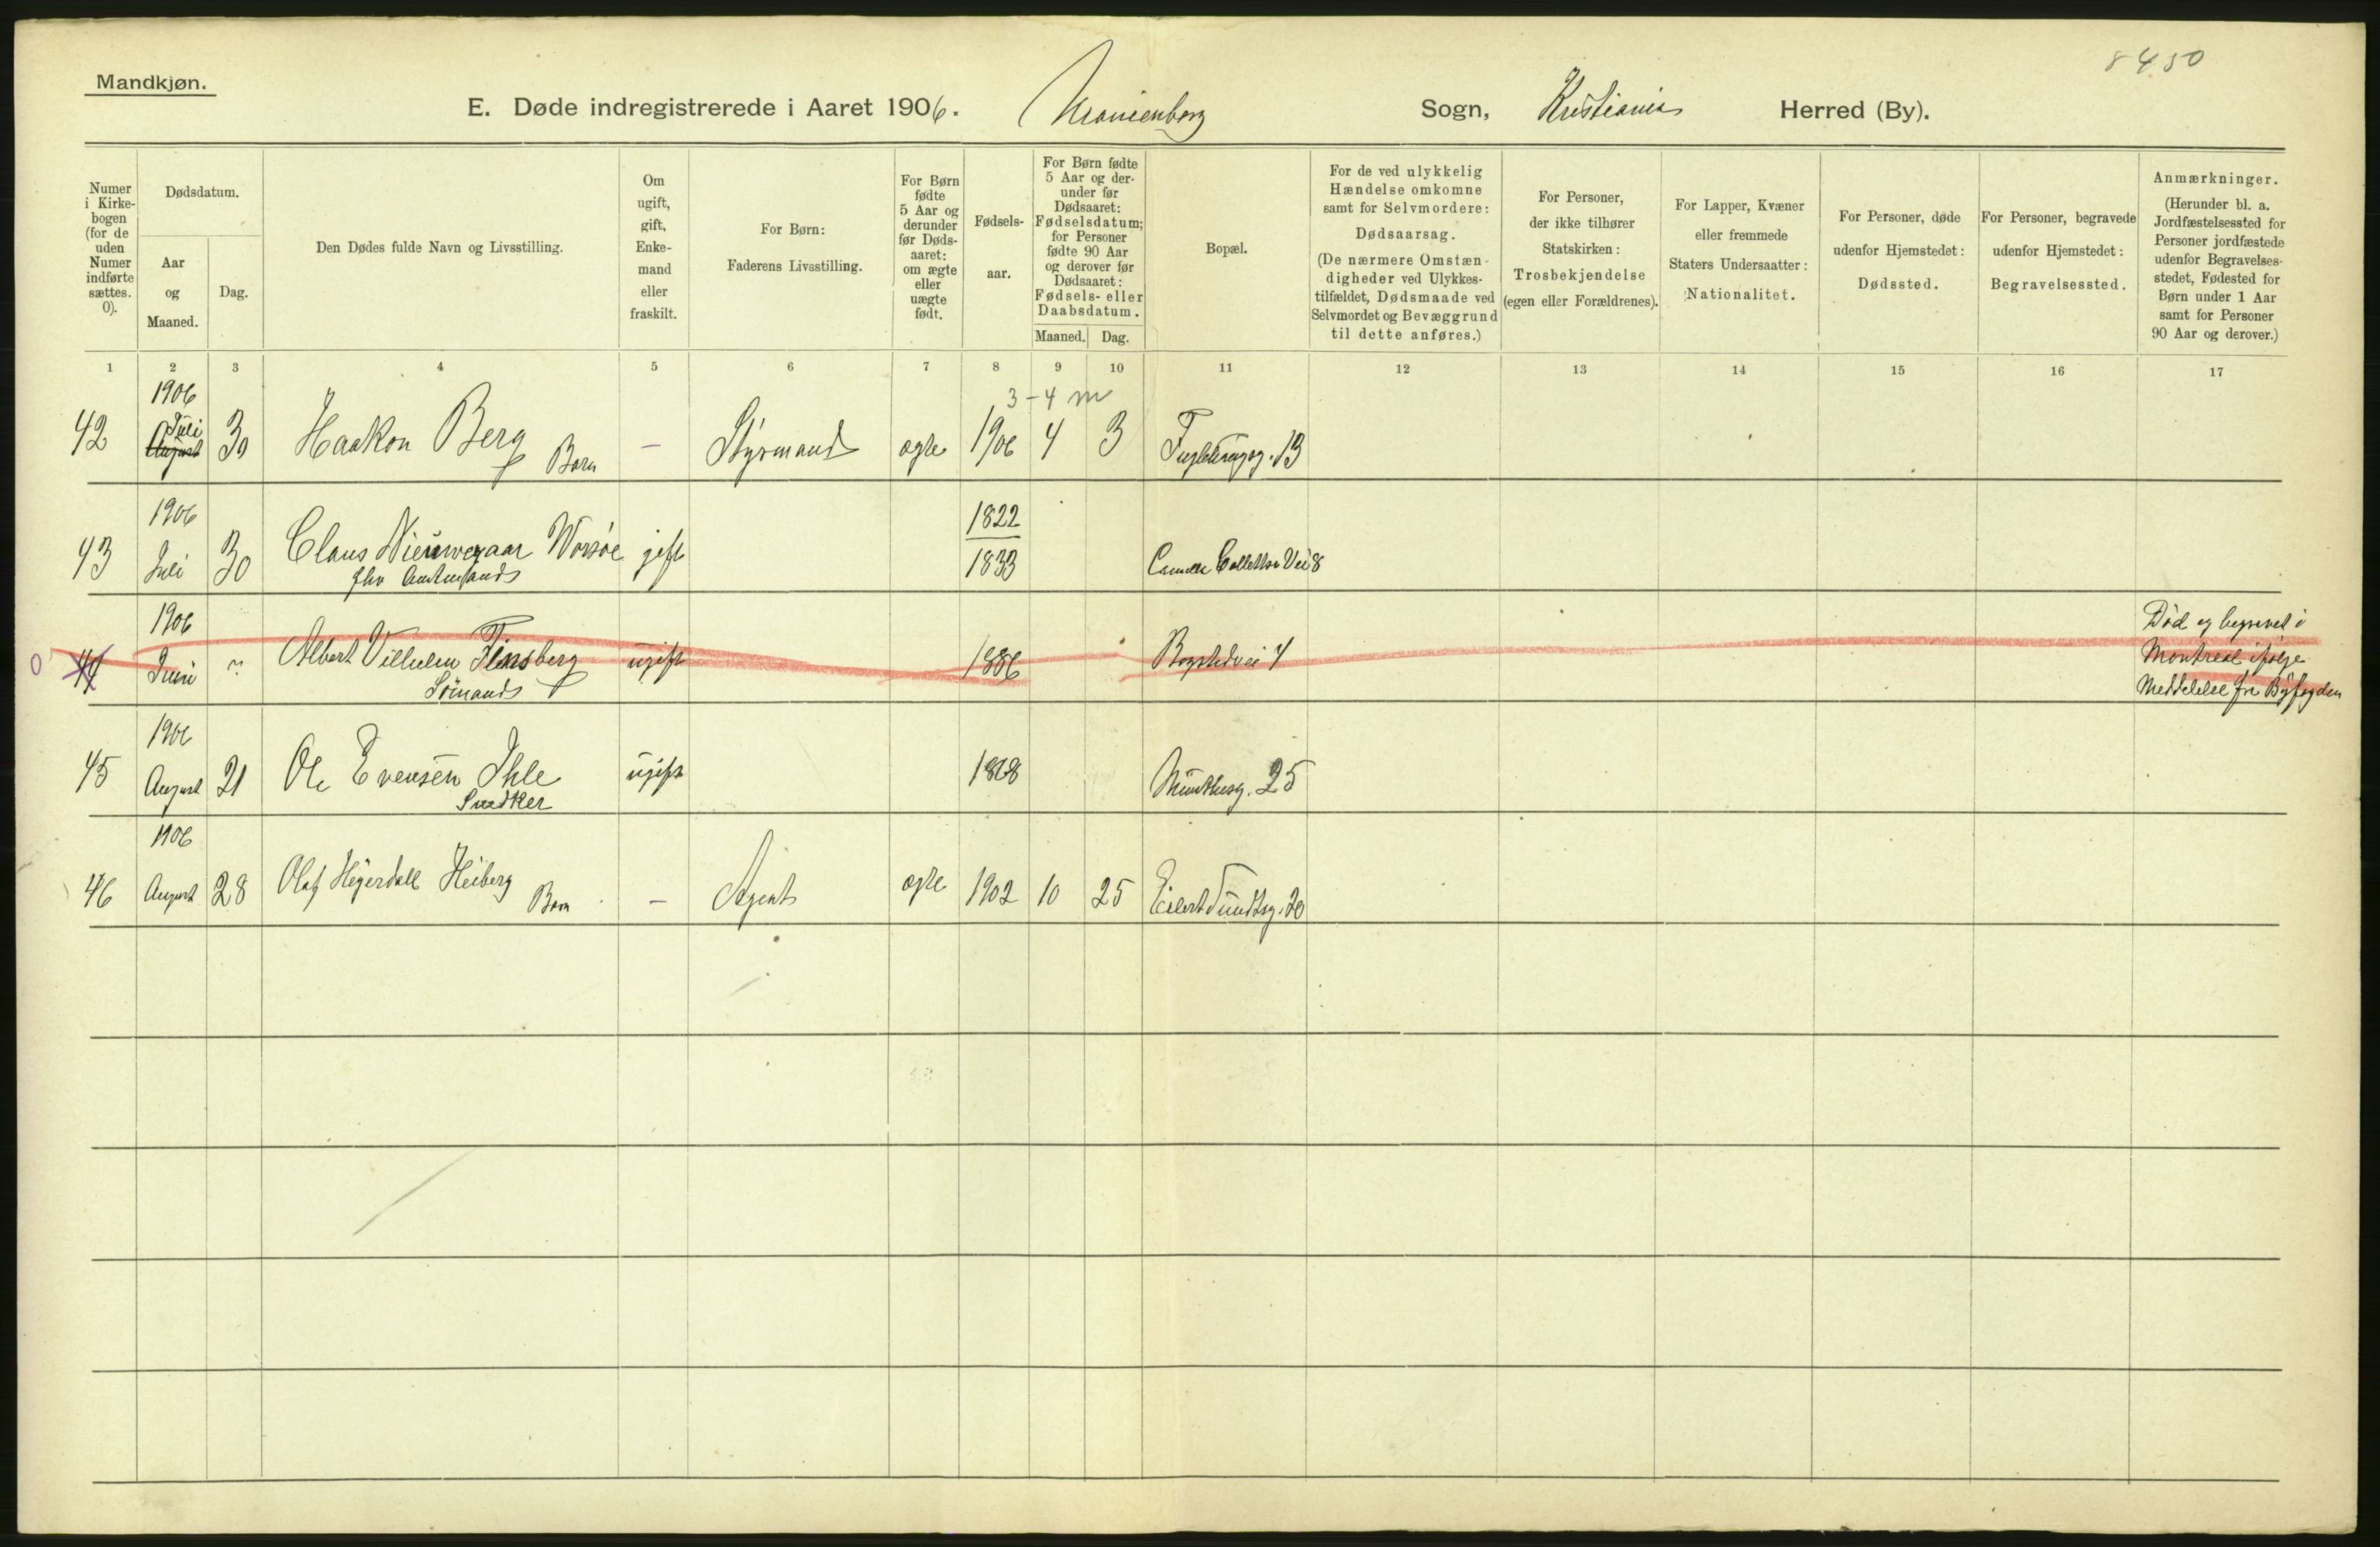 8450
Mandkjøn.
E. Døde indregistrerede i Aaret 1906. Uranienborg Sogn, Kristiania Herred (By).
Numer i Kirkebogen (for de uden Numer indførte sættes. 0).
Dødsdatum.
Aar og Maaned.
Dag.
Den Dødes fulde Navn og Livsstilling.
Om ugift, gift, Enkemand eller fraskilt.
For Børn: Faderens Livsstilling.
For Børn fødte 5 Aar og derunder før Dødsaaret: om ægte eller uægte født.
Fødselsaar.
For Børn fødte 5 Aar og derunder før Dødsaaret: Fødselsdatum; for Personer fødte 90 Aar og derover før Dødsaaret: Fødsels- eller Daabsdatum.
Maaned. Dag.
Bopæl.
For de ved ulykkelig Hændelse omkomne samt for Selvmordere: Dødsaarsag. (De nærmere Omstændigheder ved Ulykkestilfældet, Dødsmaade ved Selvmordet og Bevæggrund til dette anføres.)
For Personer, der ikke tilhører Statskirken: Trosbekjendelse (egen eller Forældrenes).
For Lapper, Kvæner eller fremmede Staters Undersaatter: Nationalitet.
For Personer, døde udenfor Hjemstedet: Dødssted.
For Personer, begravede udenfor Hjemstedet: Begravelsessted.
Anmærkninger. (Herunder bl. a. Jordfæstelsessted for Personer jordfæstede udenfor Begravelsesstedet, Fødested for Børn under 1 Aar samt for Personer 90 Aar og derover.)
1 2 3 4 5 6 7 8 9 10 11 12 13 14 15 16 17
1906 3-4 m
42 August Juli 30 Haakon Berg Barn - Styrmand ægte 1906 4 3 13
1906 1822
43 Juli 30 Claus Nieuwejaar Worsøe gift 1833 Camilla Colletts Vei 8
fhv Amtmand
1906 Død og begravet i
0 44 Juni ? Albert Vilhelm Flensberg ugift 1886 Bogstadvei Montreal ifølge
Sømand Meddelelse fra Byfogden
1906
45 August 21 Ole Evensen Ihle ugift Munthesg. 25
Snedker
1906
46 August 28 Olaf Heyerdall Heiberg Barn - Agent ægte 1902 10 25 Eilert Sundtsg. 20